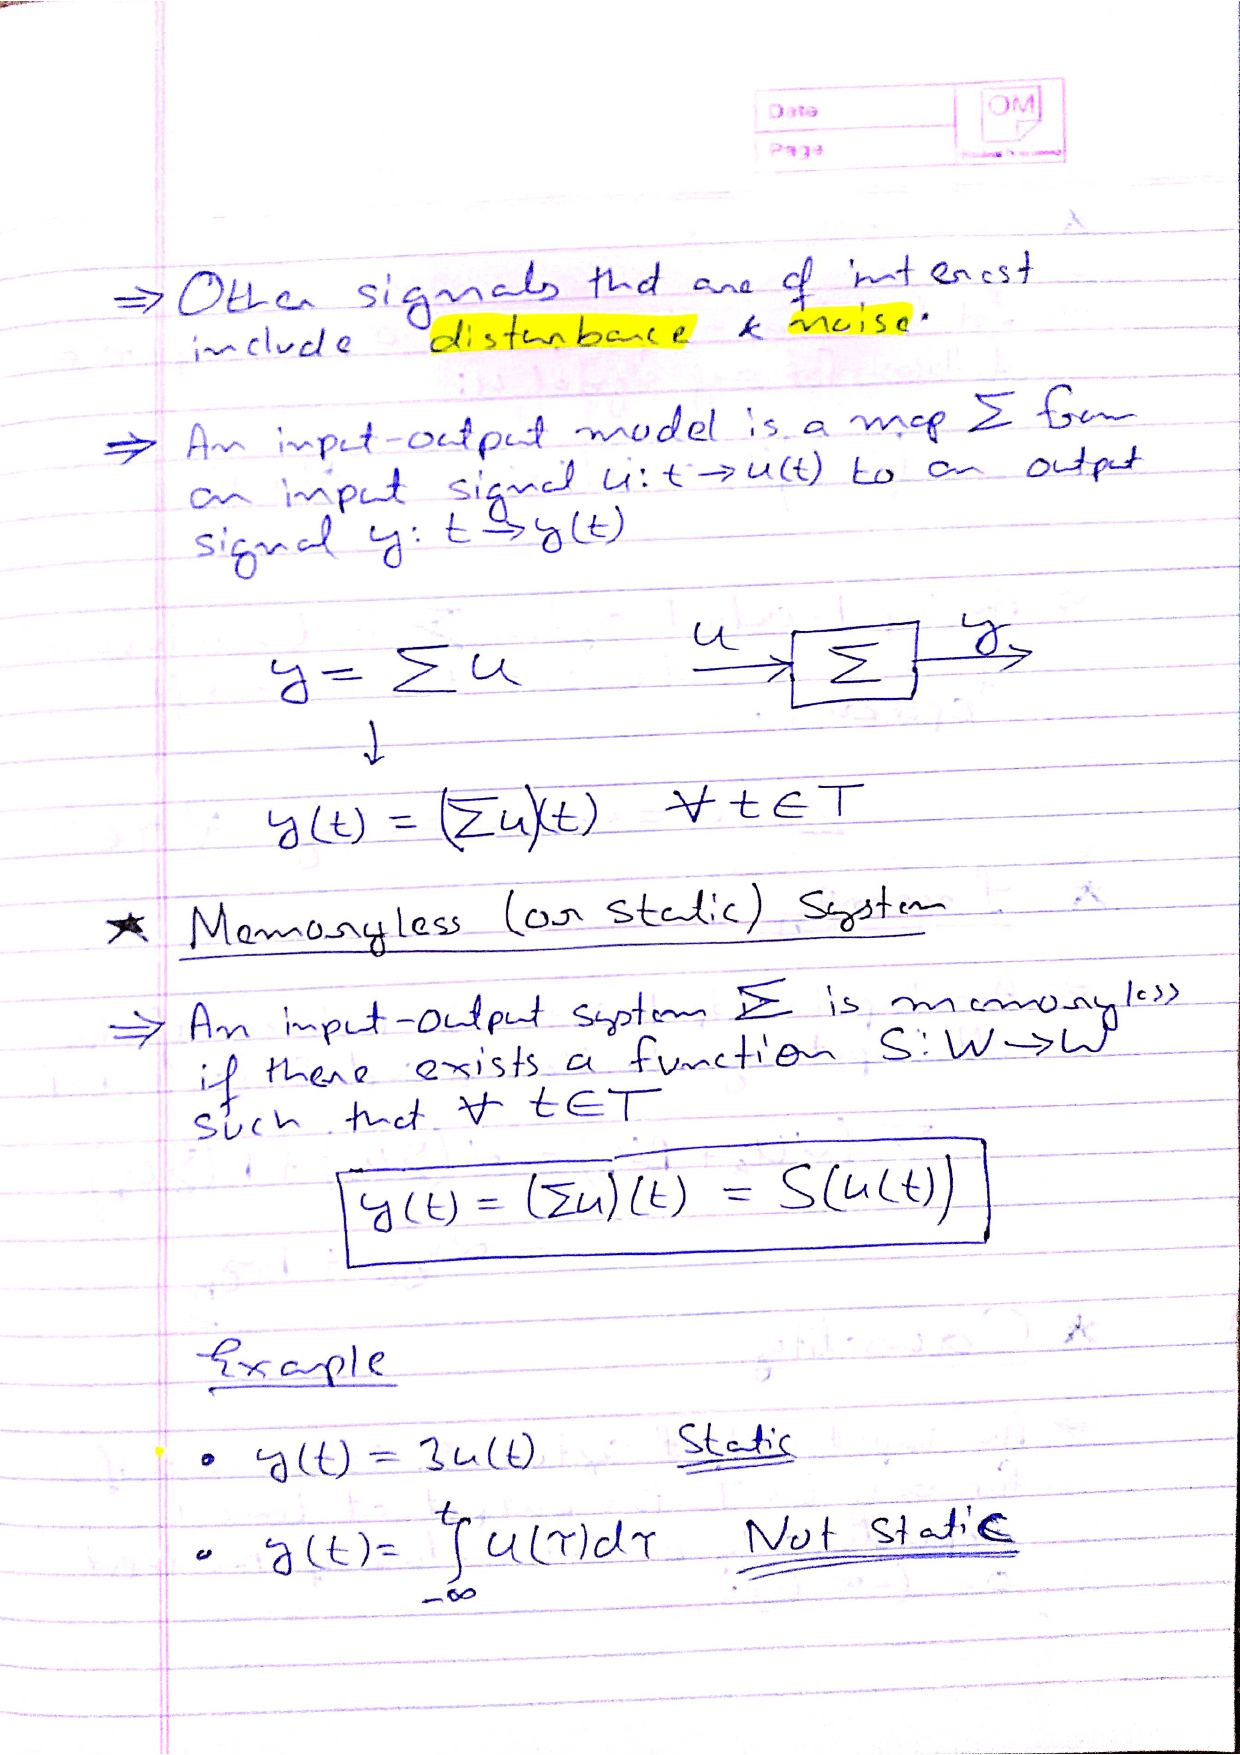 Date
OM
Page
⇒ Other signals that are of interest
include disturbance & noise.
⇒ An input-output model is a map Σ from
an input signal u: t → u(t) to an output
signal y: t → y(t)
y = Σ u
u Σ y
↓
y(t) = (Σu)(t) ∀ t ∈ T
★ Memoryless (or static) System
⇒ An input-output system Σ is memoryless
if there exists a function S: W → W
such that ∀ t ∈ T
y(t) = (Σu)(t) = S(u(t))
Example
• y(t) = 3u(t) Static
• y(t) = ∫_{-∞}^{t} u(τ)dτ Not static